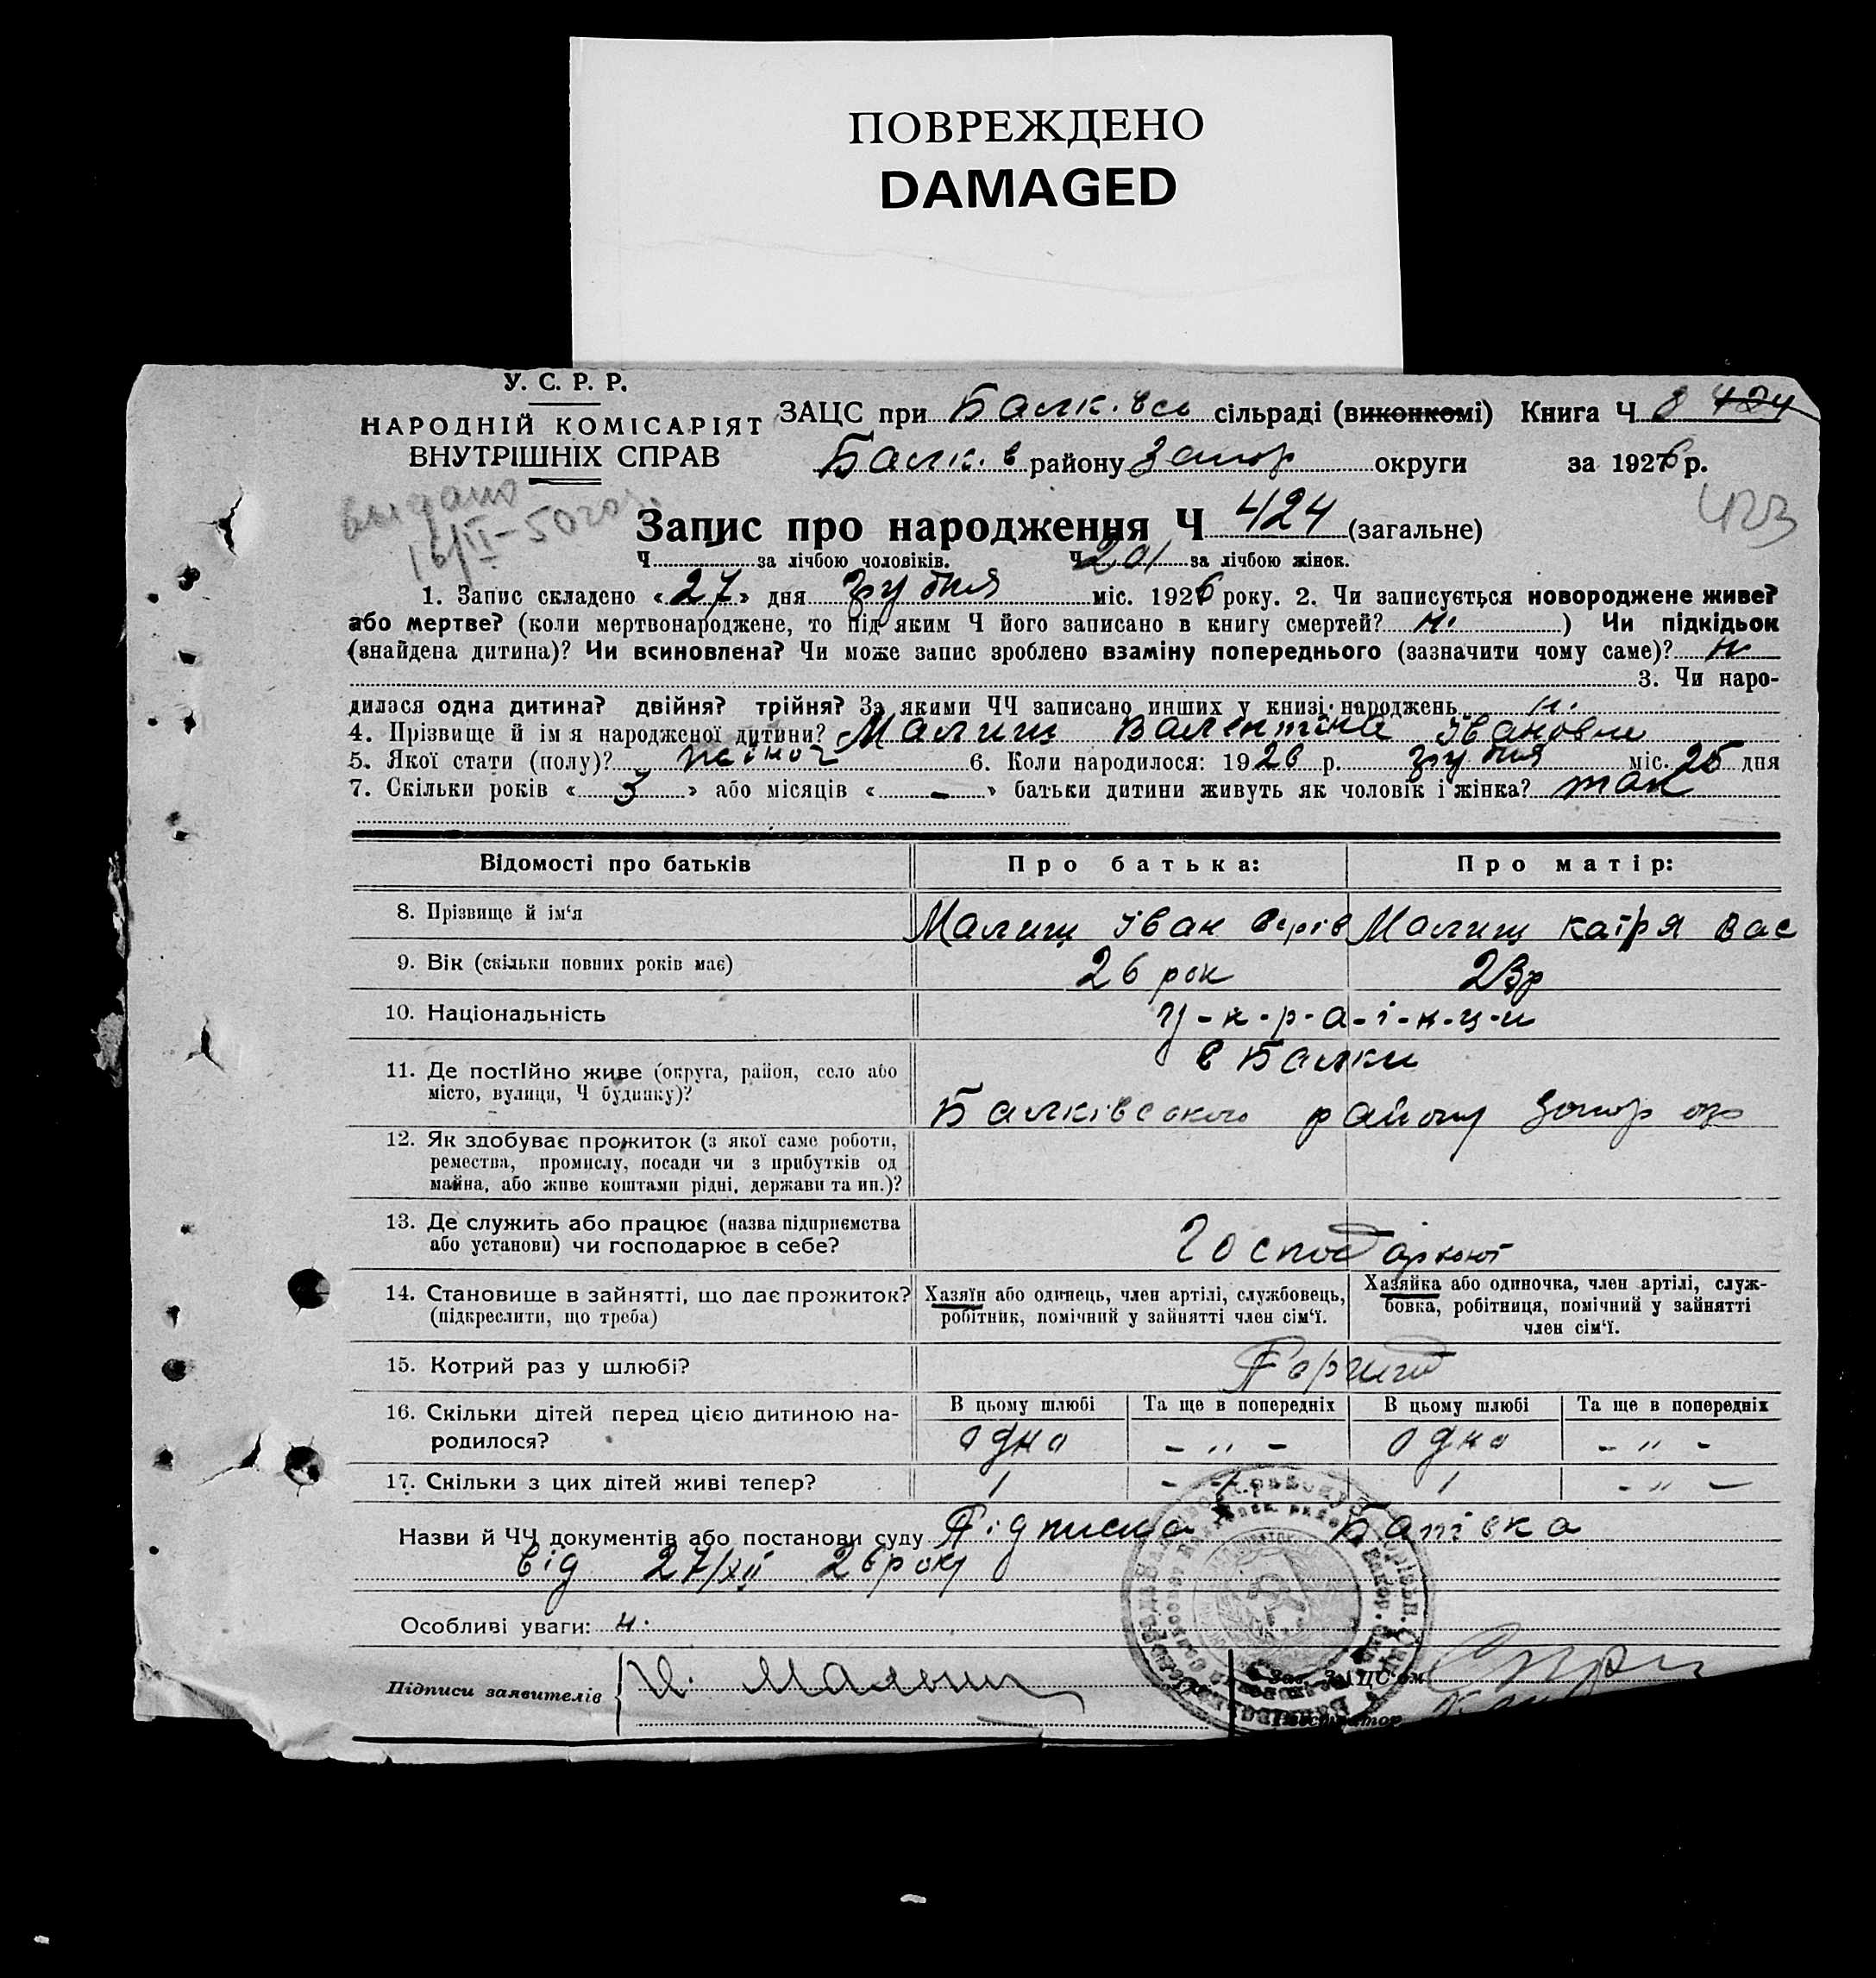 ПОВРЕЖДЕНО
DAMAGED
У. С. Р. Р.
НАРОДНІЙ КОМІСАРІЯТ
ВНУТРІШНІХ СПРАВ
ЗАЦС при Балк. вс сільраді (виконкомі) Книга Ч 8 424
Балк. в району Запор округи за 1926 р.
выдано
16/II-50 год.
423
Запис про народження Ч 424 (загальне)
Ч за лічбою чоловіків. Ч 201 за лічбою жінок.
1. Запис складено « 27 » дня грудня міс. 1926 року. 2. Чи записується новороджене живе?
або мертве? (коли мертвонароджене, то під яким Ч його записано в книгу смертей? н. ) Чи підкідьок
(знайдена дитина)? Чи всиновлена? Чи може запис зроблено взаміну попереднього (зазначити чому саме)? н
3. Чи наро-
дилася одна дитина? двійня? трійня? За якими ЧЧ записано инших у книзі народжень н.
4. Прізвище й ім я народженої дитини? Малиш Валентіна Івановни
5. Якої стати (полу)? жіноч 6. Коли народилося: 1926 р. грудня міс. 25 дня
7. Скільки років « 3 » або місяців « - » батьки дитини живуть як чоловік і жінка? так
Відомості про батьків Про батька: Про матір:
8. Прізвище й ім‘я Малиш Іван Малиш катря вас
9. Вік (скільки повних років має) 26 рок 23р
10. Національність У-к-р-а-ї-н-ц-и
11. Де постійно живе (округа, район, село або
місто, вулиця, Ч будинку)?
в Балки
Балківського району Запор окр
12. Як здобуває прожиток (з якої саме роботи,
ремества, промислу, посади чи з прибутків од
майна, або живе коштами рідні, держави та ин.)?
13. Де служить або працює (назва підприємства
або установи) чи господарює в себе?
Господарюют
14. Становище в зайнятті, що дає прожиток?
(підкреслити, що треба)
Хазяїн або одинець, член артілі, службовець,
робітник, помічний у зайнятті член сім‘ї.
Хазяйка або одиночка, член артілі, служ-
бовка, робітниця, помічний у зайнятті
член сім‘ї.
15. Котрий раз у шлюбі? Перший
16. Скільки дітей перед цією дитиною на-
родилося?
В цьому шлюбі Та ще в попередніх В цьому шлюбі Та ще в попередніх
одно - „ - одно - „ -
17. Скільки з цих дітей живі тепер? 1 - „ - 1 - „ -
Назви й ЧЧ документів або постанови суду Підписка Батівка
від 27/XII 26 року
Особливі уваги: н.
Підписи заявителів И. Малыш
Зав. ЗАЦС‘ом